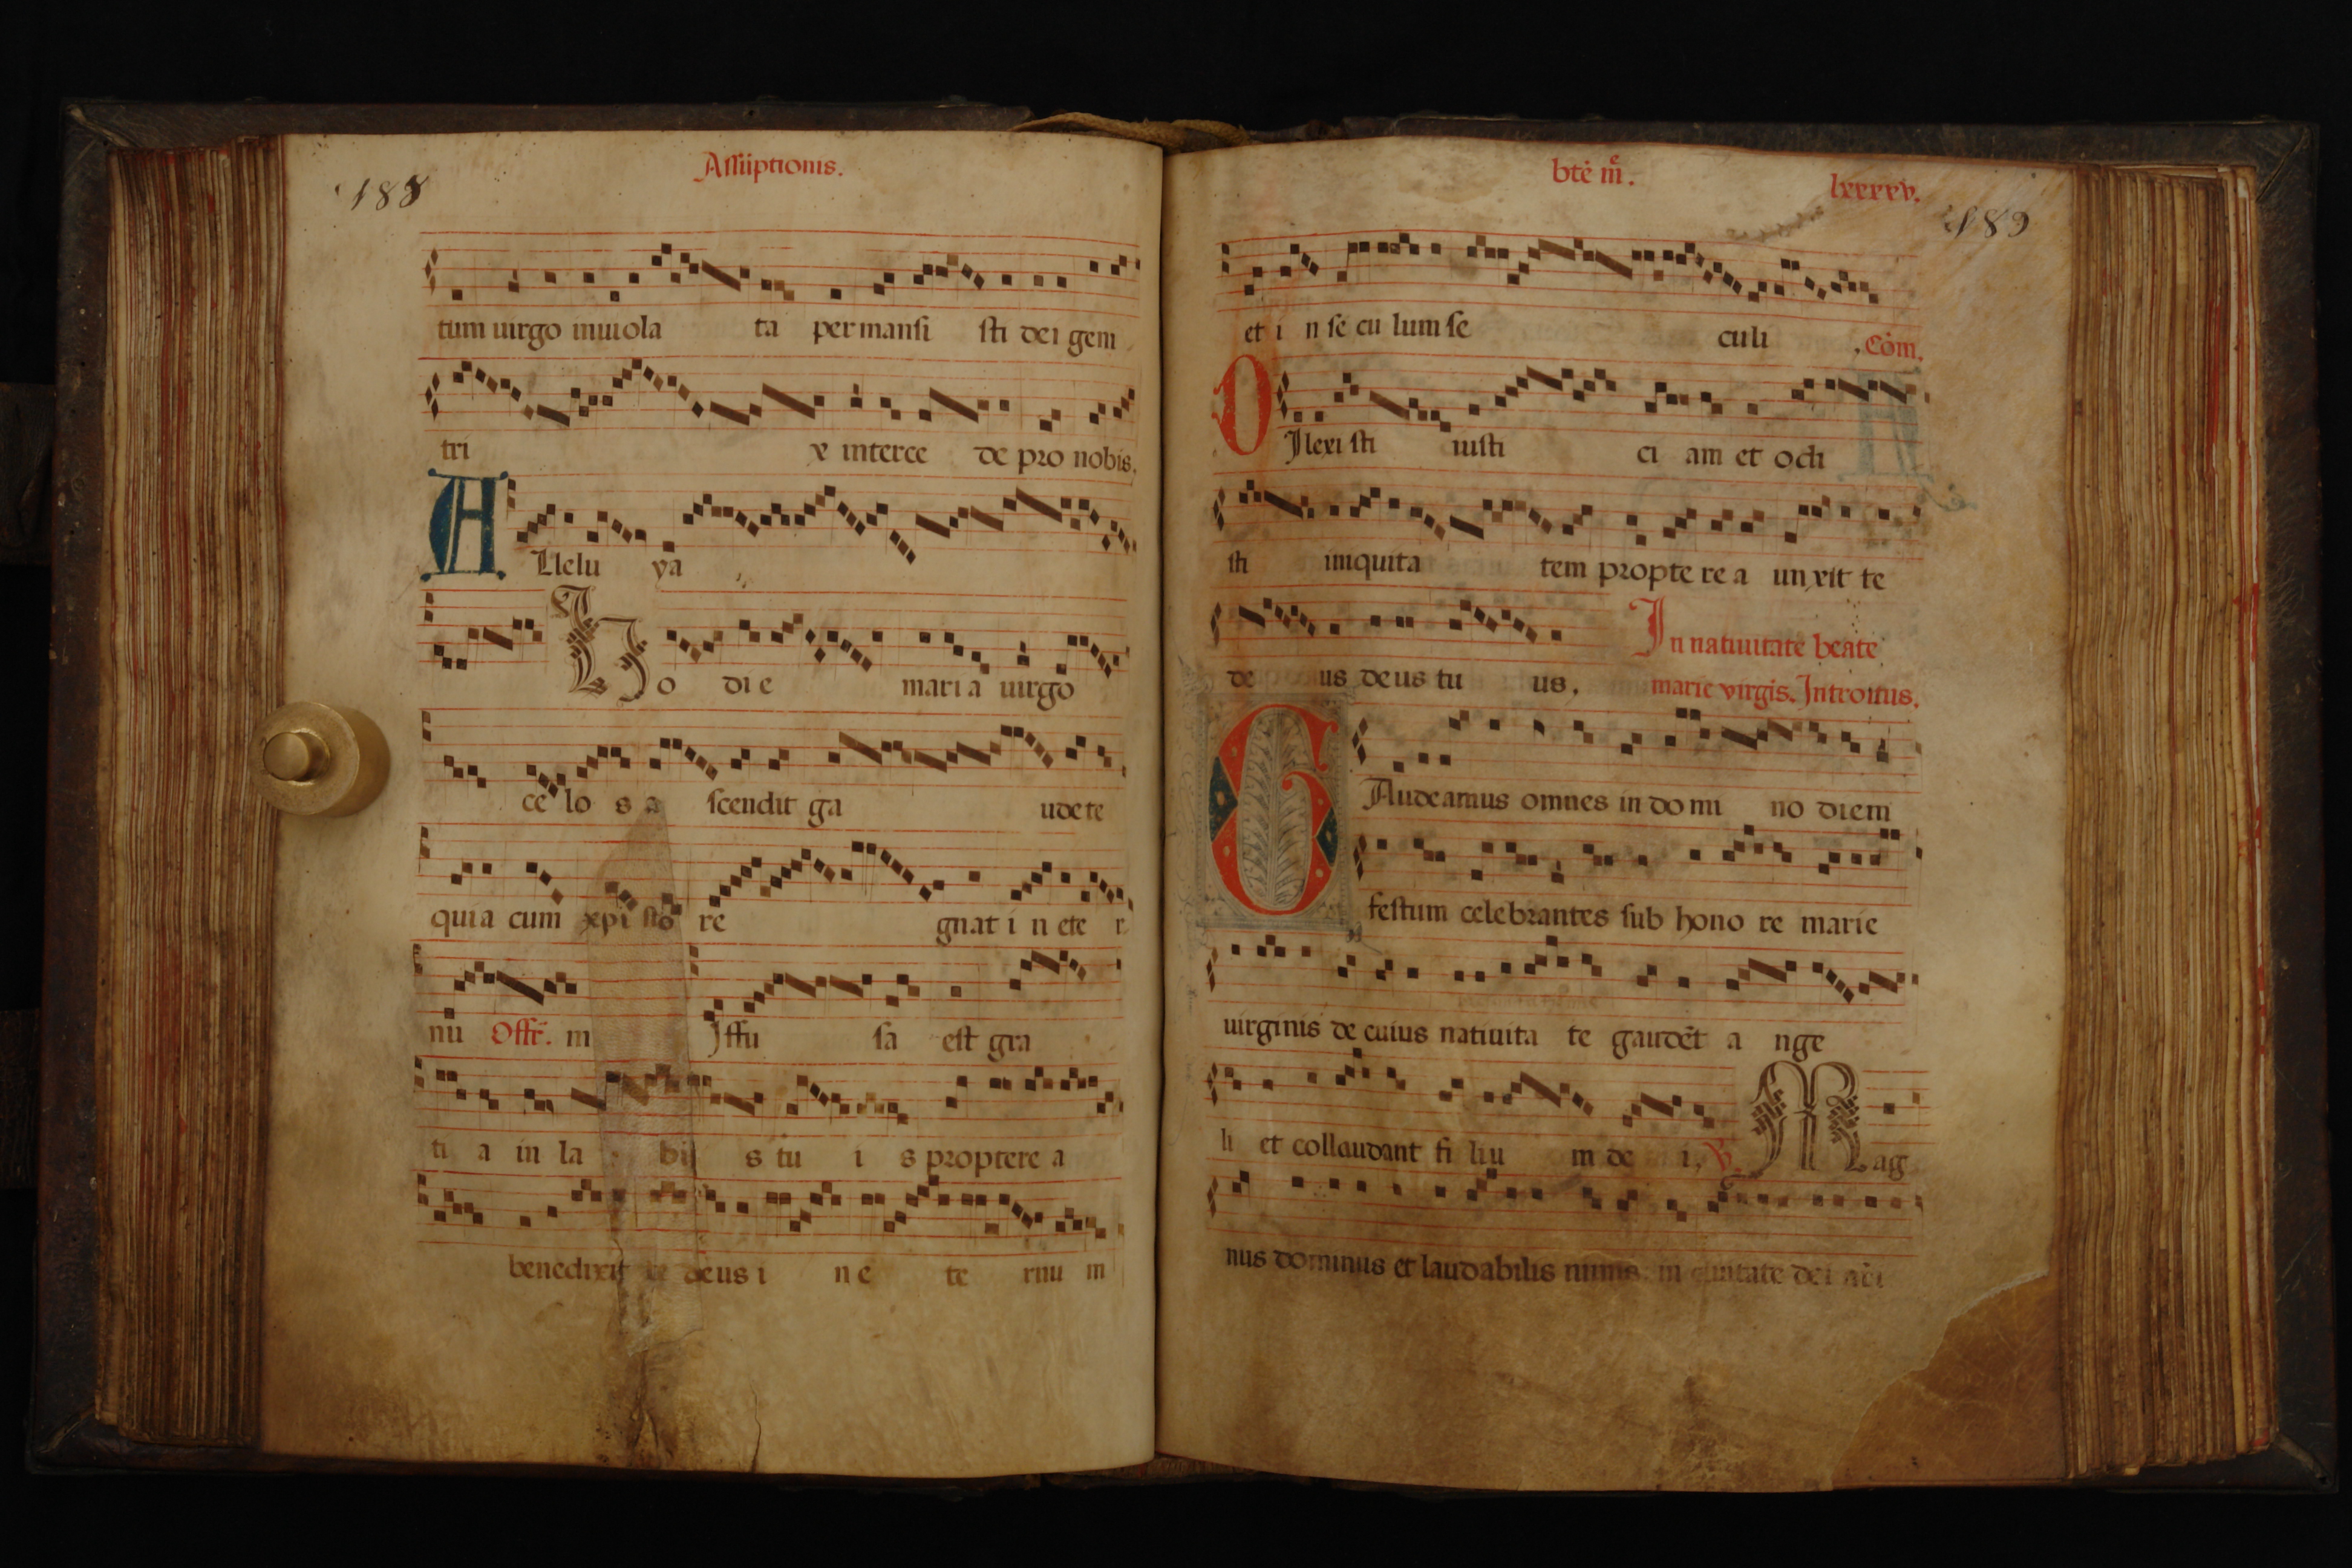 188
Assūptionis.
tum uirgo inuiola ta per mansi sti dei gem
tri x interce de pro nobis.
A Llelu ya
Ho di e mari a uirgo
ce lo s a scendit ga ude te
quia cum xpi sto re gnat i n ete r
nū Offr̄. m Iffu sa est gra
ti a in la bi s tu i s proptere a
benedixit te deus i n e te rnu m
btē m̄.
lxxxxv.
189
et i n se cu lum se culi Cōm.
D Ilexi sti iusti ci am et odi
sti iniquita tem propte re a unxit te
de us deus tu us, In natiuitate beate
marie virgis. Introitus.
G Audeamus omnes in do mi no diem
festum celebrantes sub hono re marie
uirginis de cuius natiuita te gaudēt a nge
li et collaudant fi liu m de i, V. Mag
nus dominus et laudabilis nimis in ciuitate dei